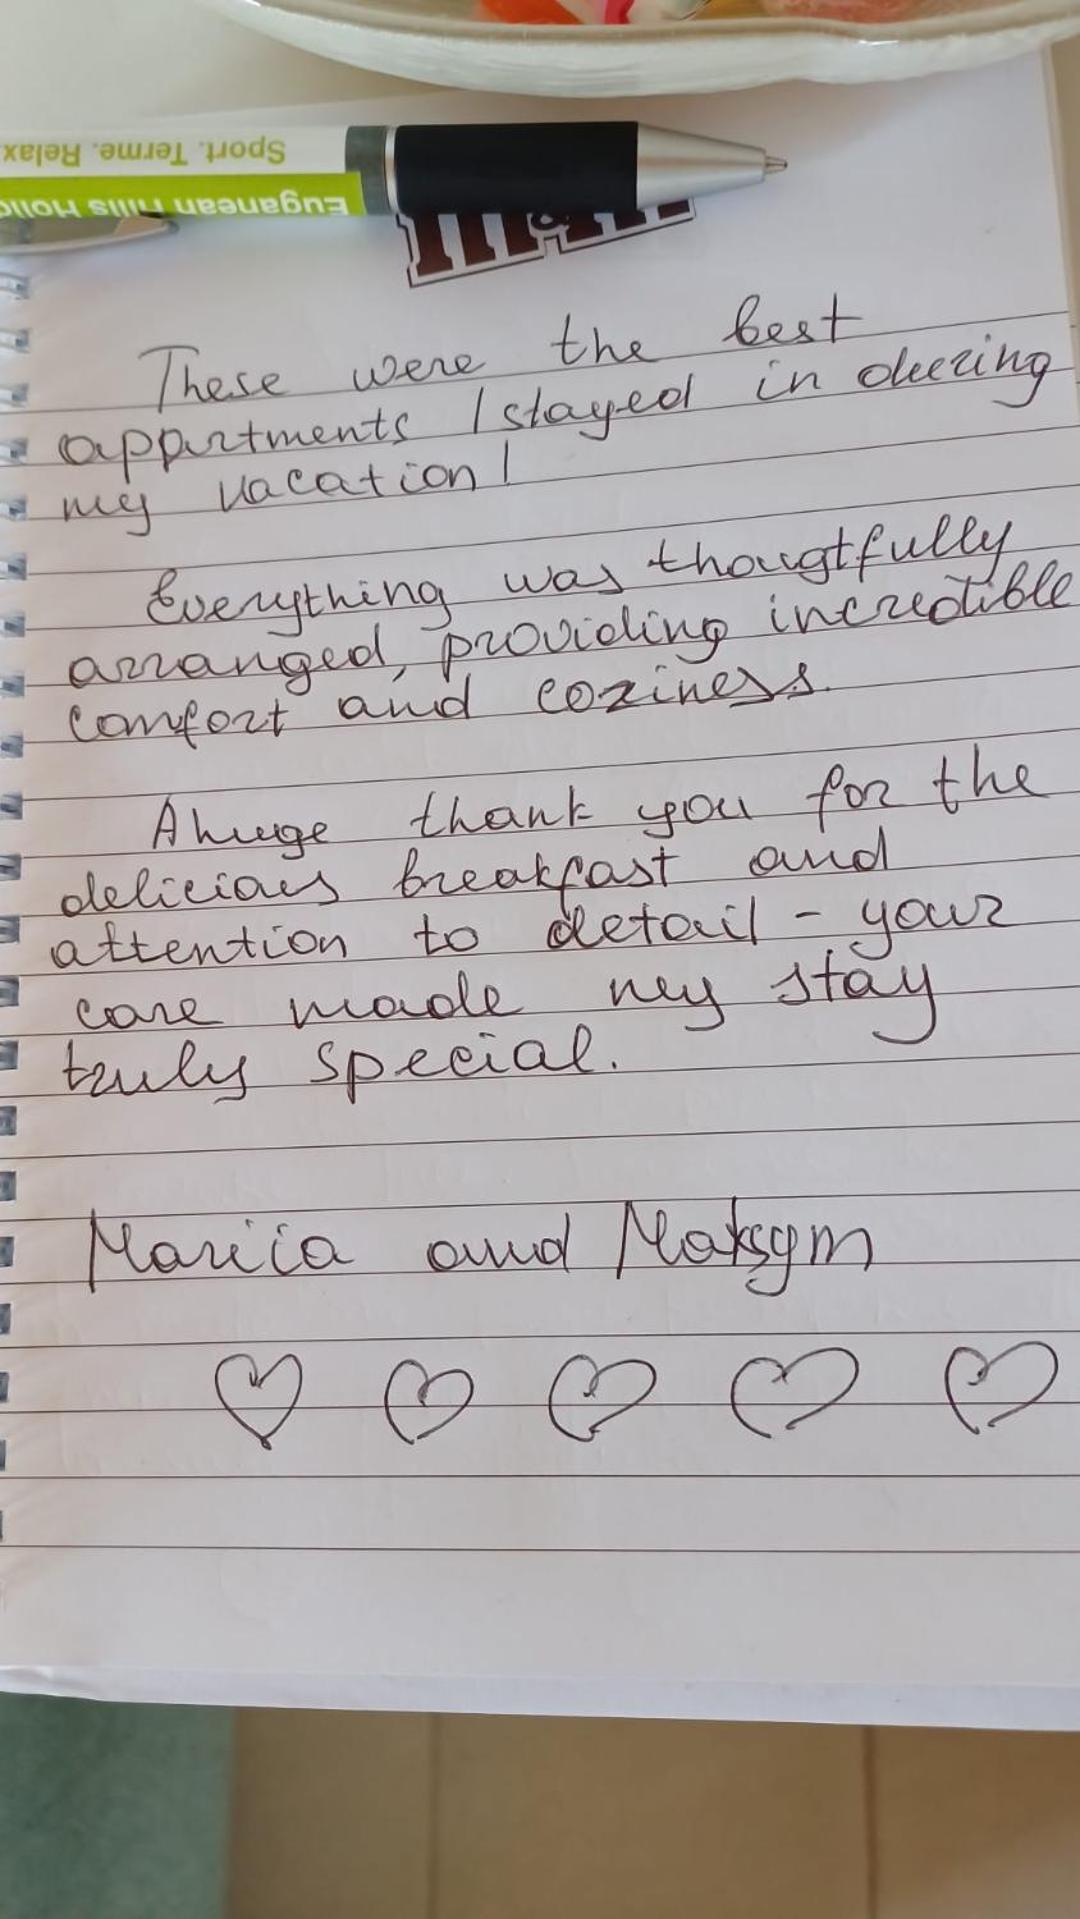 Sport. Terme. Relax
Euganean Hills Holi
These were the best
appartments I stayed in during
my vacation!
Everything was thougtfully
arranged, providing incredible
comfort and coziness.
A huge thank you for the
delicious breakfast and
attention to detail - your
care made my stay
truly special.
Mariia and Maksym